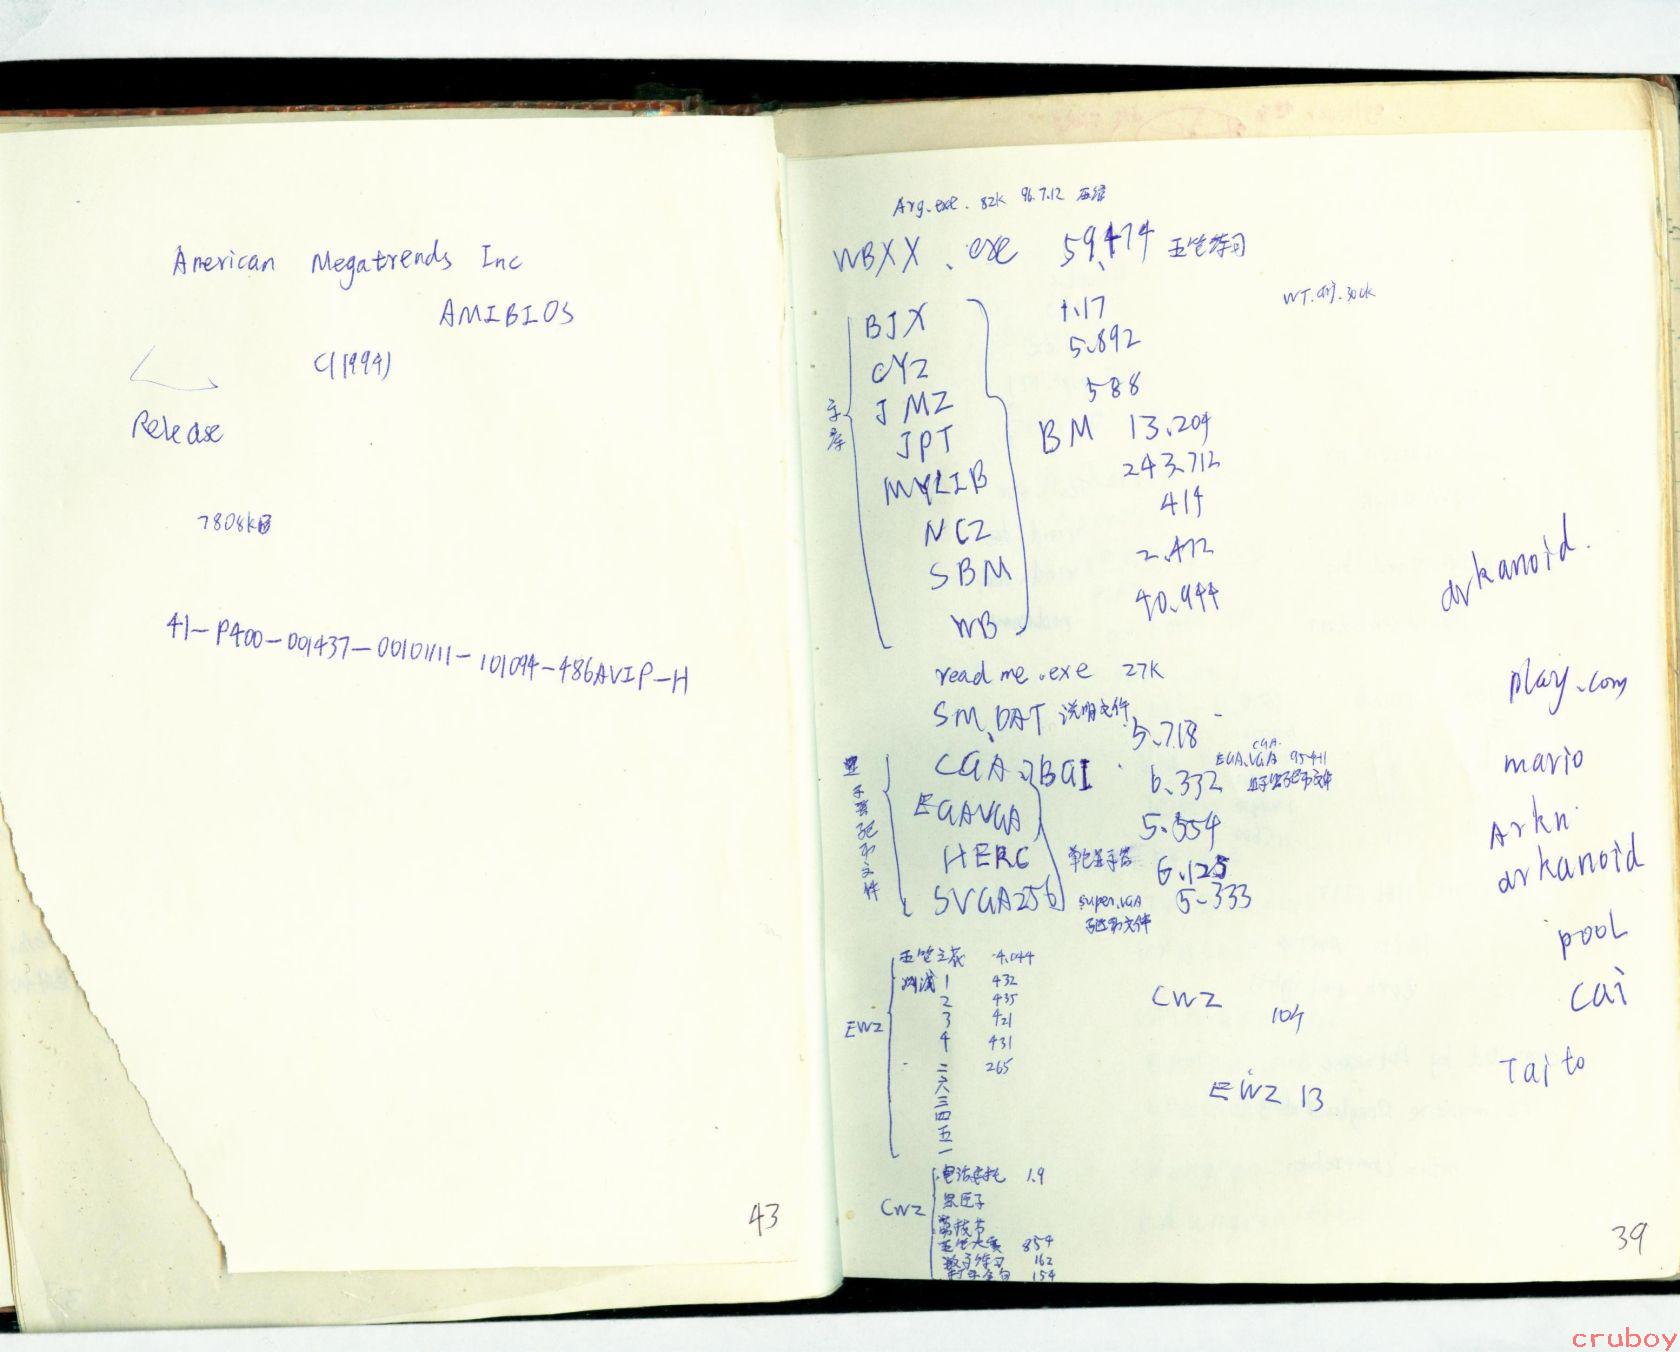 American Megatrends Inc
AMIBIOS
C(1994)
Release
7808kB
41-P400-001437-00101111-101094-486AVIP-H
43
Arg.exe. 82k 96.7.12 压缩
WBXX.exe 59,474 五笔练习
WT. 300k
字库
BJX 1.17
CYZ 5.892
JMZ 588
JPT BM 13.204
MYLIB 243.712
NCZ 414
SBM 2.472
WB 40.944
arkanoid.
read me.exe 27K
play.com
SM.DAT 说明文件 5.718
显示器驱动文件
CGA .BGI 6.332
CGA.
EGA.VGA 95411
显示器驱动文件
mario
EGAVGA 5.554
Arkn.
HERC 单色显示器 6.125
arkanoid
SVGA256 super.VGA 5.333
驱动文件
pool
EWZ
五笔之花 4.044
测试 1 432
2 435
3 421
4 431
265
二
六
三
四
五
一
CWZ 10个
cai
EWZ 13
Taito
CWZ
1.9
五笔大赛 854
数字练习 162
154
39
cruboy